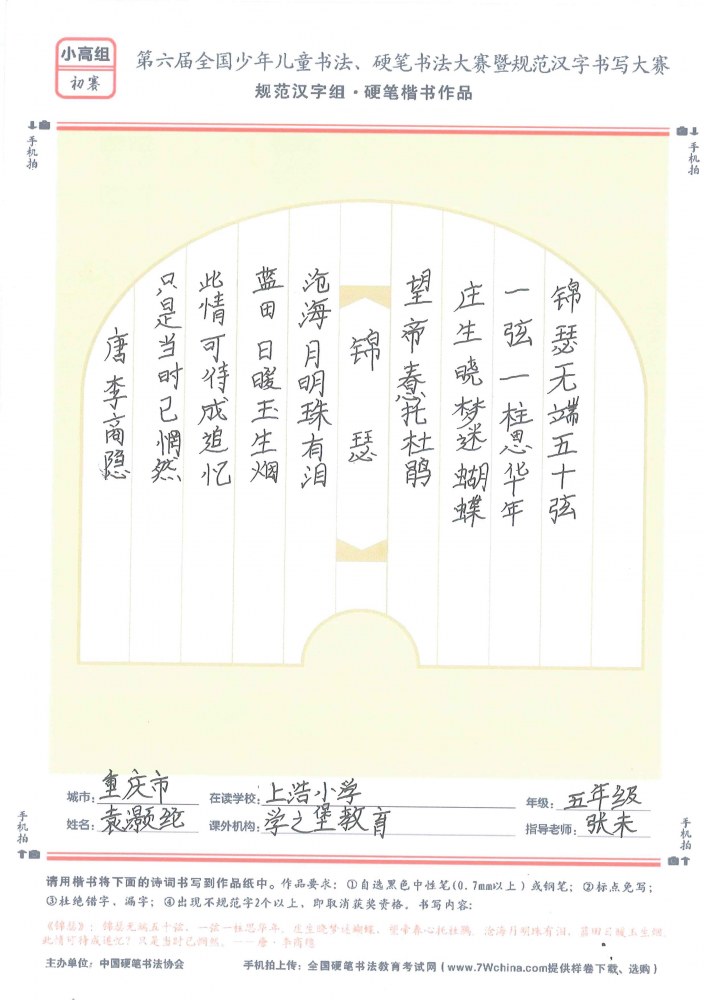 小高组
初赛
第六届全国少年儿童书法、硬笔书法大赛暨规范汉字书写大赛
规范汉字组·硬笔楷书作品
手机拍
手机拍
锦瑟无端五十弦
一弦一柱思华年
庄生晓梦迷蝴蝶
望帝春托杜鹃
锦瑟
沧海月明珠有泪
蓝田日暖玉生烟
此情可待成追忆
只是当时已惘然
唐李商隐
城市:重庆市
在读学校:上浩小学
年级:五年级
姓名:袁灏纶
课外机构:学之堡教育
指导老师:张未
手机拍
手机拍
请用楷书将下面的诗词书写到作品纸中。作品要求:①自选黑色中性笔(0.7mm以上)或钢笔;②标点免写;
③杜绝错字、漏字;④出现不规范字2个以上,即取消获奖资格。书写内容:
《锦瑟》:锦瑟无端五十弦,一弦一柱思华年。庄生晓梦迷蝴蝶,望帝春心托杜鹃。沧海月明珠有泪,蓝田日暖玉生烟。
此情可待成追忆?只是当时已惘然。——唐·李商隐
主办单位:中国硬笔书法协会
手机拍上传:全国硬笔书法教育考试网(www.7Wchina.com提供样卷下载、选购)